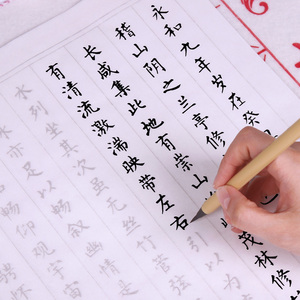 永和九年岁在癸
稽山阴之兰亭修
长咸集此地有崇山茂林修
有清流激湍映带左右引以为
水列坐其次虽无丝竹管弦
亦足以畅叙幽情是
畅仰观宇宙
骋怀